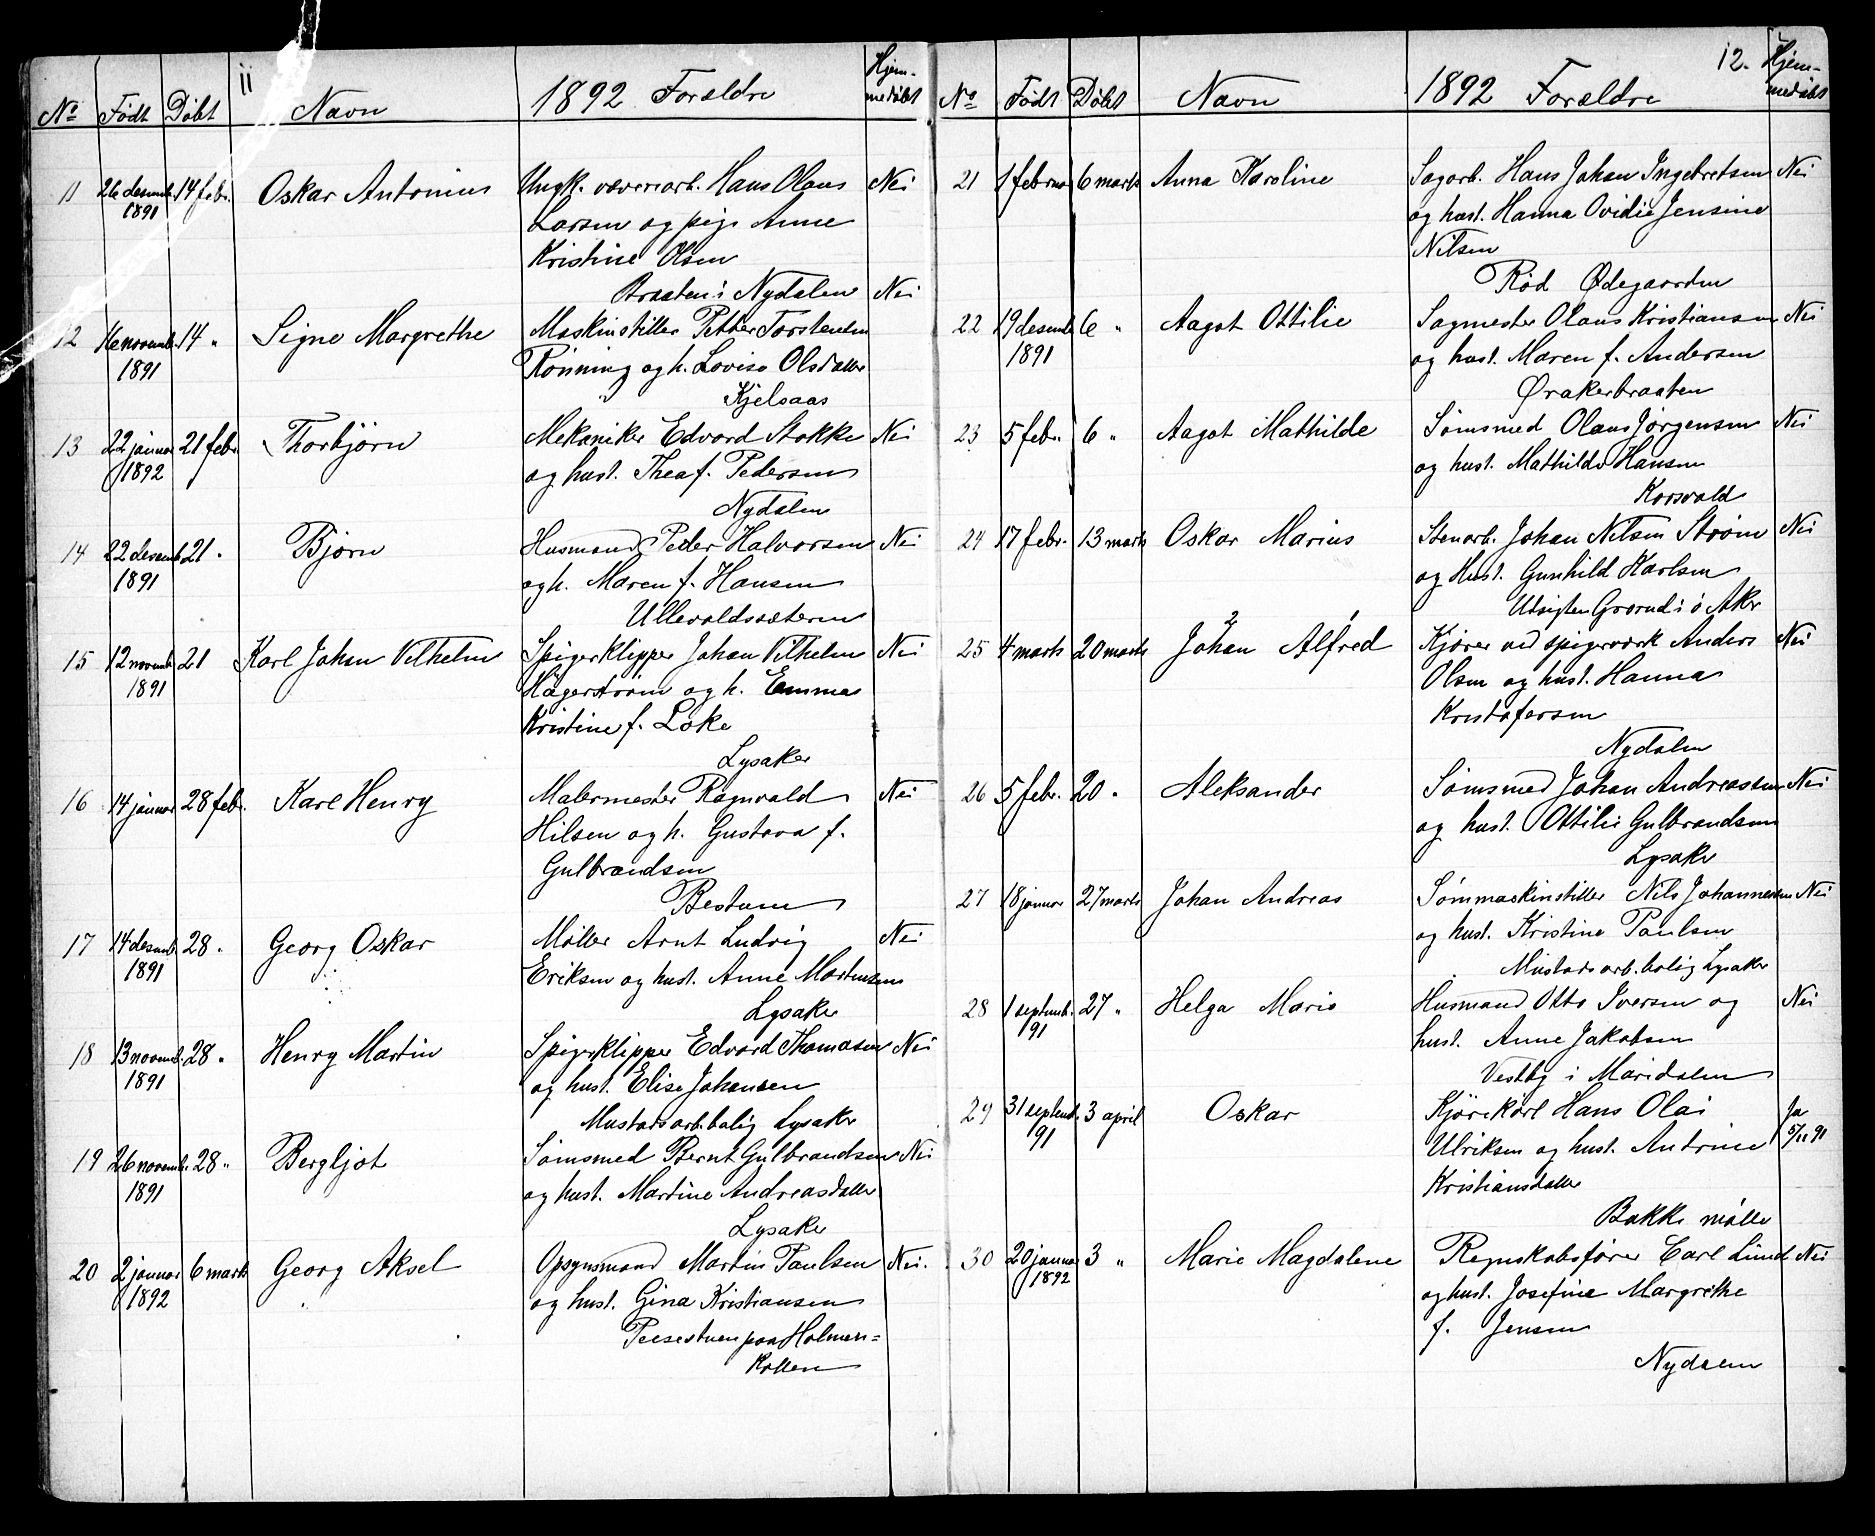 11
No Født Døbt Navn 1892 Forældre Hjem-
medøbt
11 26 desemb. 14 febr. Oskar Antonius Ungk. væveriarb. Hans Olaus Nei
1891 Larsen og pige Anne
Kristine Olsen
Braaten i Nydalen Nei
12 16 novemb. 14 " Signe Margrethe Maskinstiller Petter Torstensen
1891 Rönning og h. Lovise Olsdatter
Kjelsaas
13 22 januar 21 febr. Thorbjørn Mekaniker Edvard Stokke Nei
1892 og hust. Thea f. Pedersen
Nydalen
14 22 desemb. 21 " Bjørn Husmand Peder Halvorsen Nei
1891 og h. Maren f. Hansen
Ullevoldsæteren
15 12 novemb. 21 Karl Johan Vilhelm Spigerklipper Johan Vilhelm Nei
1891 Hägerstrøm og h. Emma
Kristine f. Loke
Lysaker
16 14 januar 28 febr. Karl Henry Malermester Ragnvald Nei
Hilsen og h. Gustava f.
Gulbrandsen
Bestum
17 14 desemb. 28 " Georg Oskar Møller Arnt Ludvig Nei
1891 Eriksen og hust. Anne Mortensen
Lysaker
18 13 novemb. 28 " Henry Martin Spigerklipper Edvard Thomasen Nei
1891 og hust. Elise Johansen
Mustads arb.bolig Lysaker
19 26 novemb. 28 " Bergljot Sømsmed Bernt Gulbrandsen Nei
1891 og hust. Martine Andreasdatter
Lysaker
20 2 januar 6 marts Georg Aksel Opsynsmand Martin Paulsen Nei.
1892 og hust. Gina Kristiansen
Peisestuen paa Holmen=
kollen
12.
No Født Døbt Navn 1892 Forældre Hjem-
medøbt
21 1 februar 6 marts Anna Karoline Sagarb. Hans Johan Ingebretsen Nei
og hust. Hanna Ovidie Jensine
Nilsen
Rød Ødegaarden
22 19 desemb. 6 " Aagot Ottilie Sagmester Olaus Kristiansen Nei
1891 og hust. Maren f. Andersen
Ørakerbraaten
23 5 febr. 6 " Aagot Mathilde Sømsmed Olaus Jørgensen Nei
og hust. Mathilde Hansen
Korsvold
24 17 febr. 13 marts Oskar Marius Stenarb. Johan Nilsen Strøm Nei
og Hust. Gunhild Karlsen
Udsigten Grorud i ø Aker
25 4 marts 20 marts Johan Alfred Kjører ved spigerværk Anders Nei
Olsen og hust. Hanna
Kristofersen
Nydalen
26 5 febr. 20 " Aleksander Sømsmed Johan Andreassen Nei
og hust. Ottilie Gulbrandsen
Lysaker
27 18 januar 27 marts Johan Andreas Sømmaskinstiller Nils Johannesen Nei
og hust. Kristine Paulsen
Mustads arb.bolig Lysaker
28 1 septemb. 27 " Helga Marie Husmand Otto Iversen og Nei
91 hust. Anne Jakobsen
Vestby i Maridalen
29 31 septemb. 3 april Oskar Kjørekarl Hans Olai Ja
91 Ulriksen og hust. Antrine 5/11 91
Kristiansdatter
Bakke mølle
30 20 januar 3 " Marie Magdalene Regnskabsfører Carl Lund Nei
1892 og hust. Josefine Margrethe
f. Jensen
Nydalen